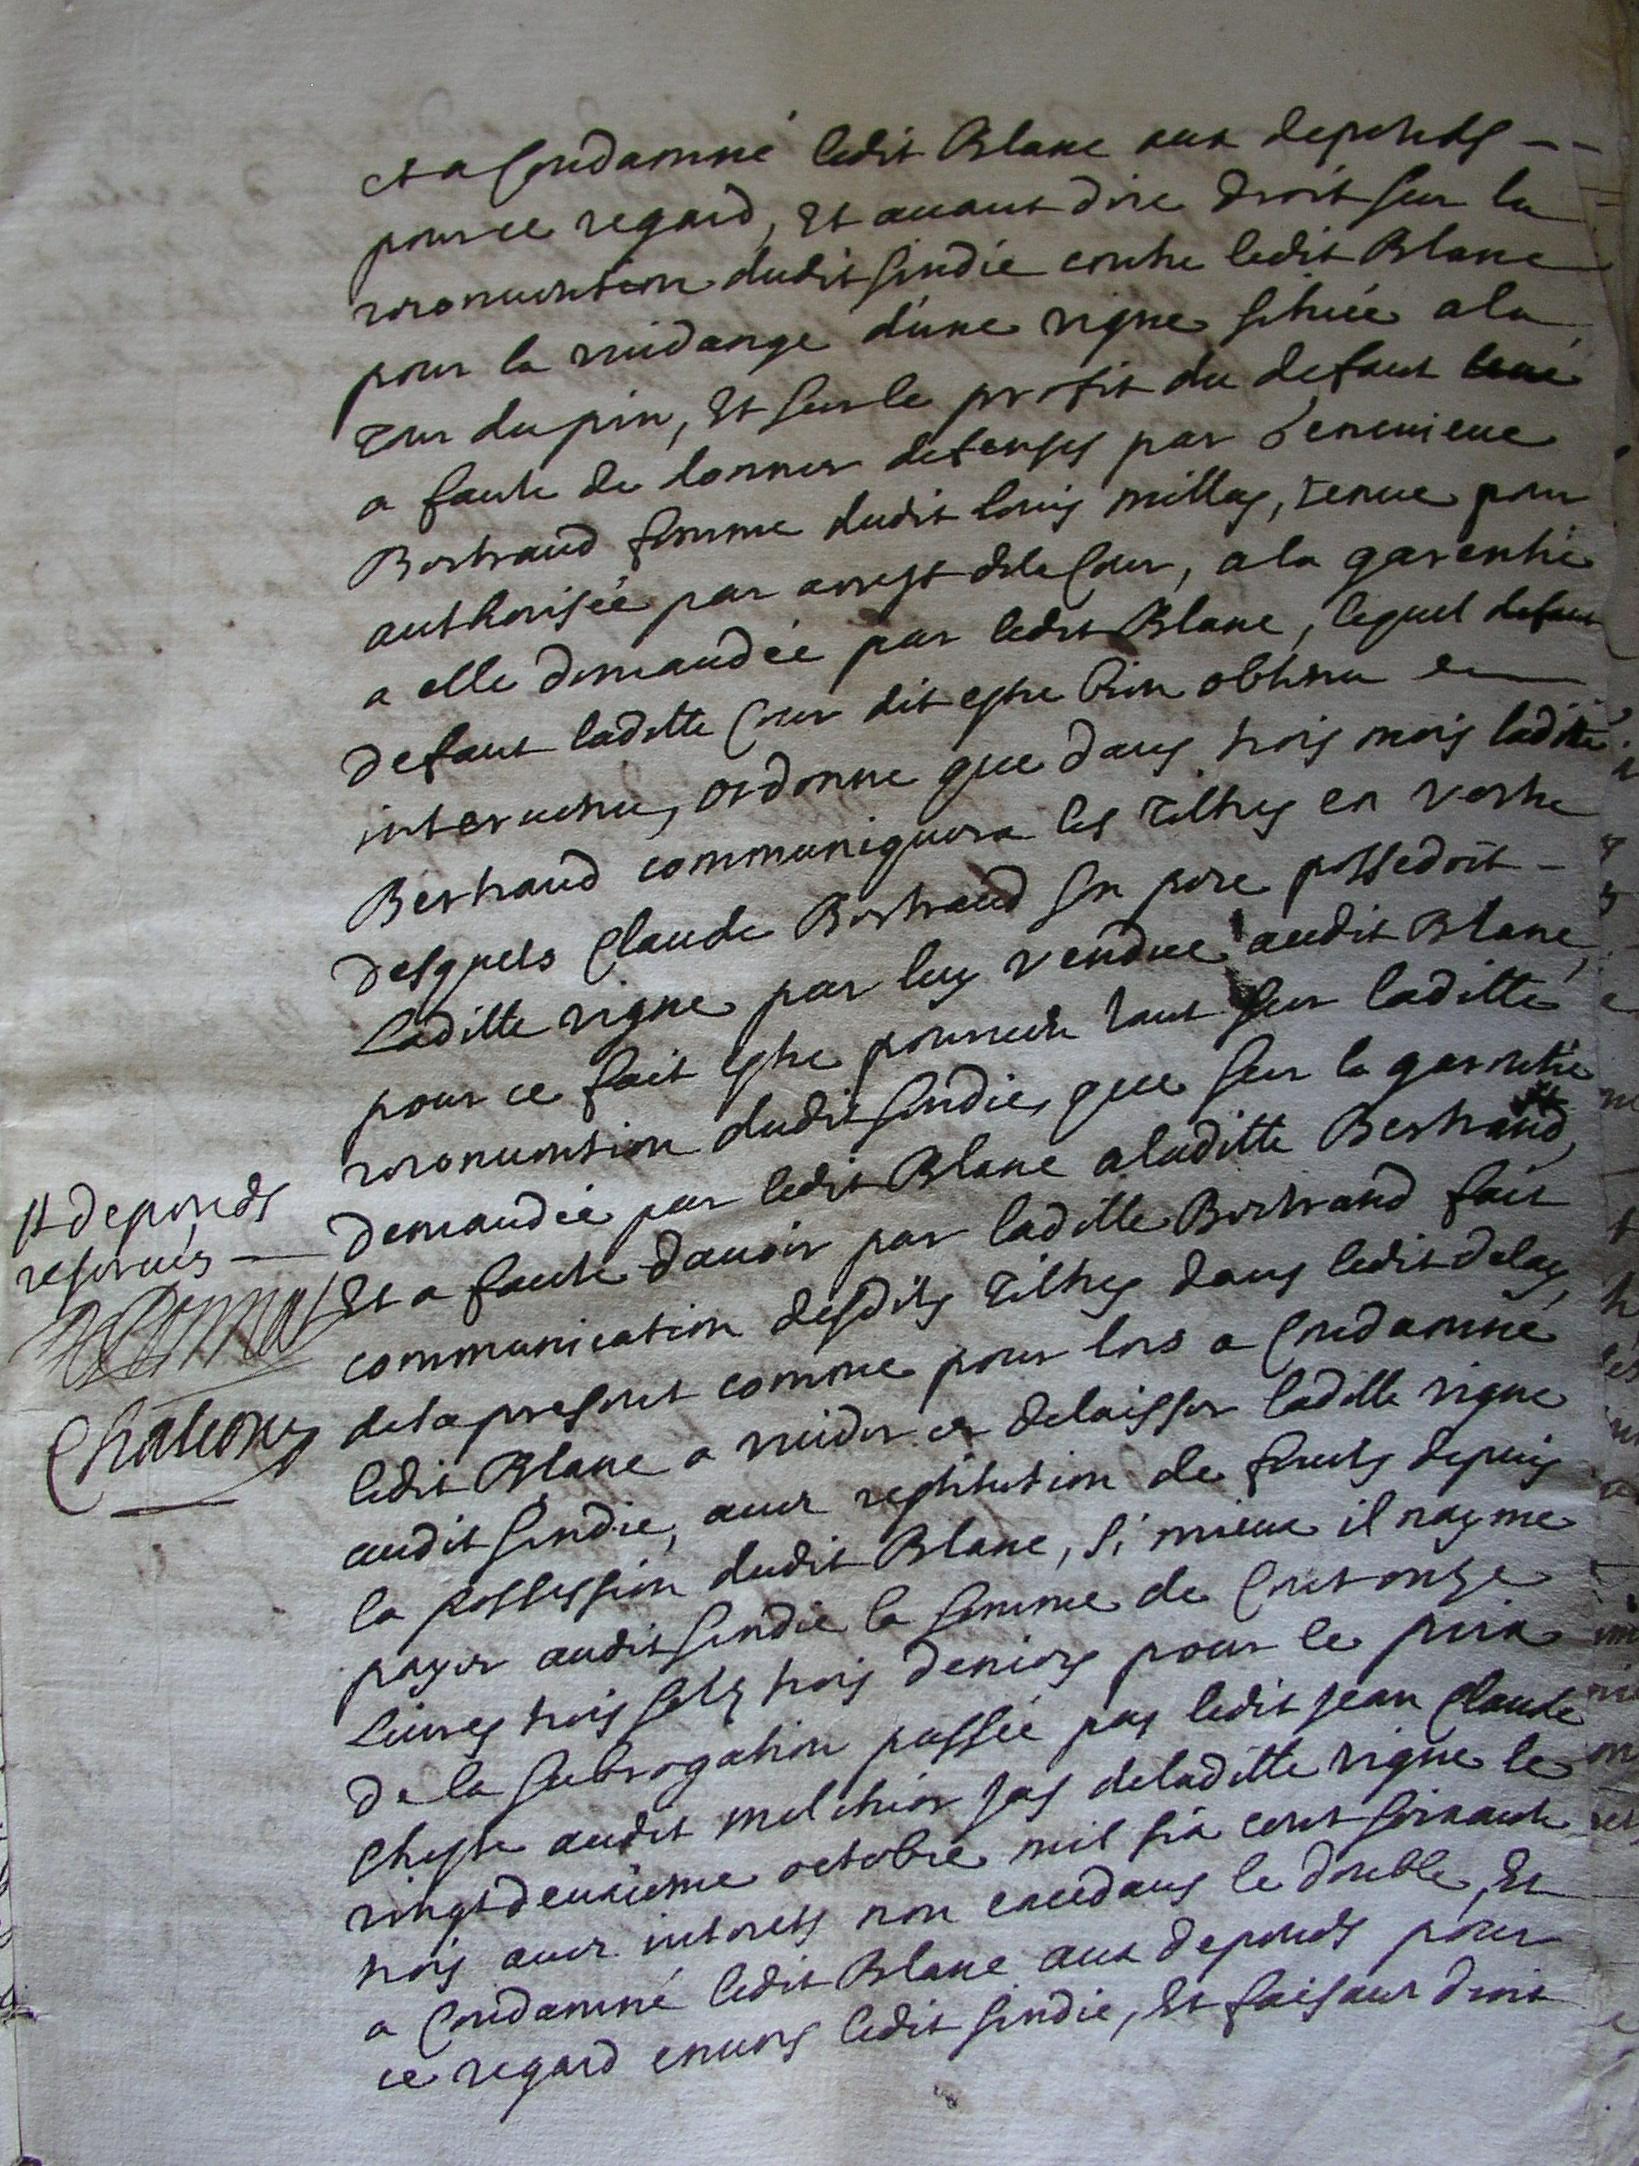 et a Condamné ledit Blanc aux depends
pour ce regard, Et avant dire droit sur la
reconvention dudit sindic contre ledit Blanc
pour la vuidange d'une vigne située a la
Tour du pin, Et sur le profit du defaut levé
a faute de donner defenses par Genevieve
Bertrand femme dudit louis millas, tenue pour
authorisée par arrest de la Cour, a la garentie
a elle demandée par ledit Blanc, lequel defaut
defaut laditte Cour dit estre bien obtenu et
intervenu, ordonne que dans trois mois laditte
Bertrand communiquera les tiltres en vertu
desquels Claude Bertrand son pere possedoit
Laditte vigne par luy vendue audit Blanc,
pour ce fait estre pourveu tant sur laditte
reconvention dudit sindic, que sur la garentie
demandée par ledit Blanc a laditte Bertrand,
et depends
reservés
Chaleon
Et a faute d'avoir par laditte Bertrand fait
communication desdits tiltres dans ledit delay,
des a present comme pour lors a Condamné
ledit Blanc a vuider et delaisser laditte vigne
audit sindic, avec restitution de fruits depuis
la possession dudit Blanc, si mieux il n'ayme
payer audit sindic la somme de Cent onze
Livres trois sols trois deniers pour le prix
de la subrogation passée par ledit jean Claude
audit melchior jas de laditte vigne le
vingt deuxieme octobre mil six cent soixante
trois avec interets non excedans le double, Et
a Condamné ledit Blanc aux depends pour
ce regard envers ledit sindic, Et faisant droit